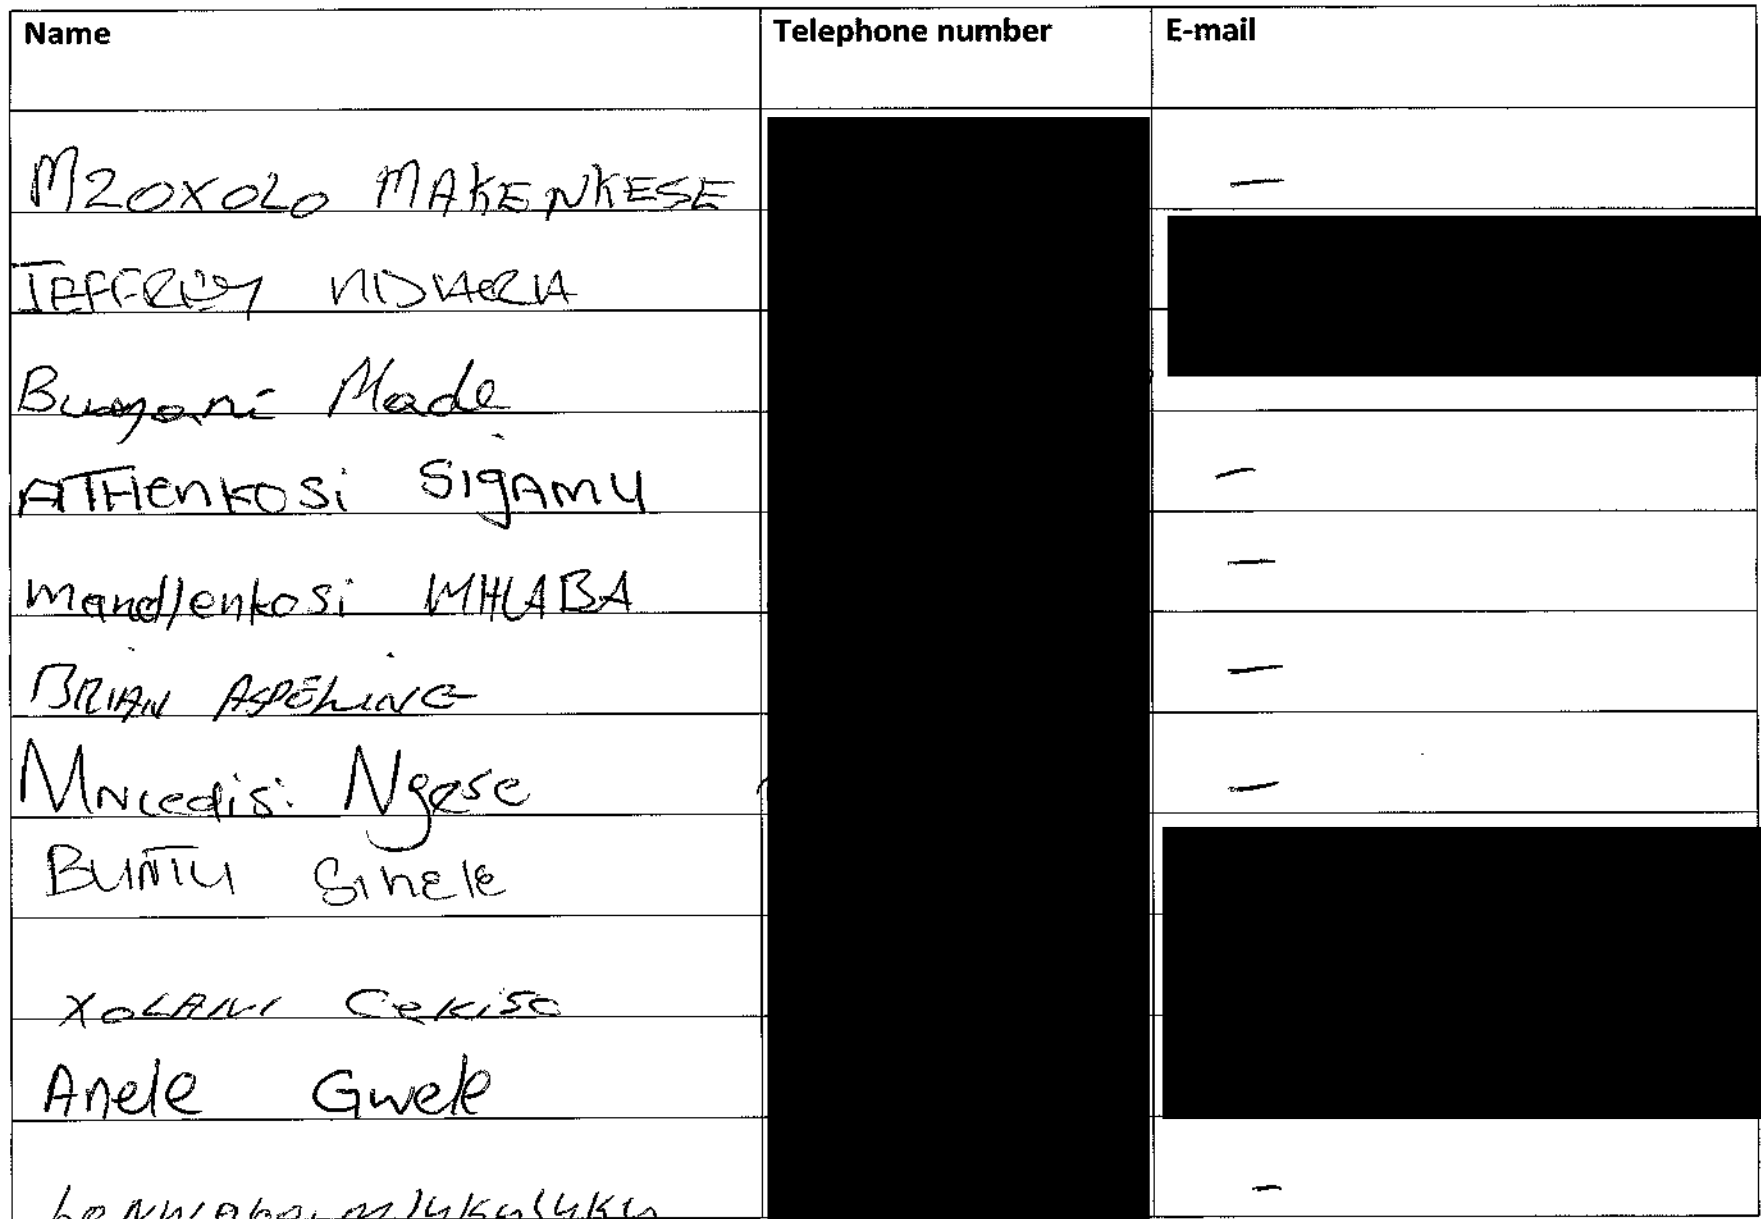 Name Telephone number E-mail
MZOXOLO MAKENKESE —
JEFFREY
Buyani Made
ATHenkosi SigAMU —
Mandlenkosi MHLABA —
BRIAN ASPELING —
Mncedisi Ngese —
BUNTU Sinele
XOLANI Cekiso
Anele Gwele
—